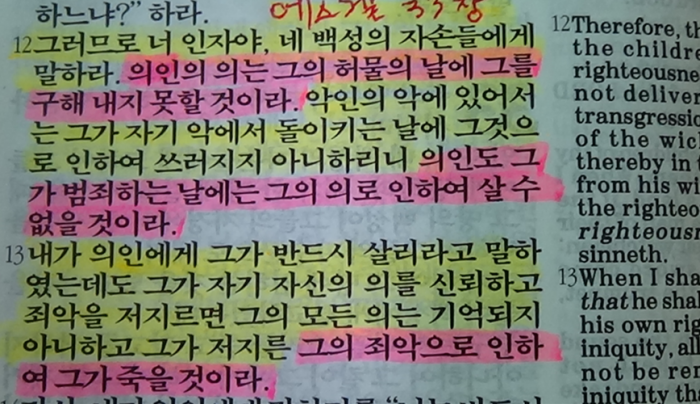 하느냐?" 하라.
에스겔 33장
12그러므로 너 인자야, 네 백성의 자손들에게
말하라. 의인의 의는 그의 허물의 날에 그를
구해 내지 못할 것이라. 악인의 악에 있어서
는 그가 자기 악에서 돌이키는 날에 그것으
로 인하여 쓰러지지 아니하리니 의인도 그
가 범죄하는 날에는 그의 의로 인하여 살 수
없을 것이라.
13내가 의인에게 그가 반드시 살리라고 말하
였는데도 그가 자기 자신의 의를 신뢰하고
죄악을 저지르면 그의 모든 의는 기억되지
아니하고 그가 저지른 그의 죄악으로 인하
여 그가 죽을 것이라.
12Therefore, th
the childre
righteousne
not deliver
transgressio
of the wic
thereby in t
from his wi
the righteo
righteousn
sinneth.
13When I sha
that he sha
his own rig
iniquity, all
not be rem
iniquity th